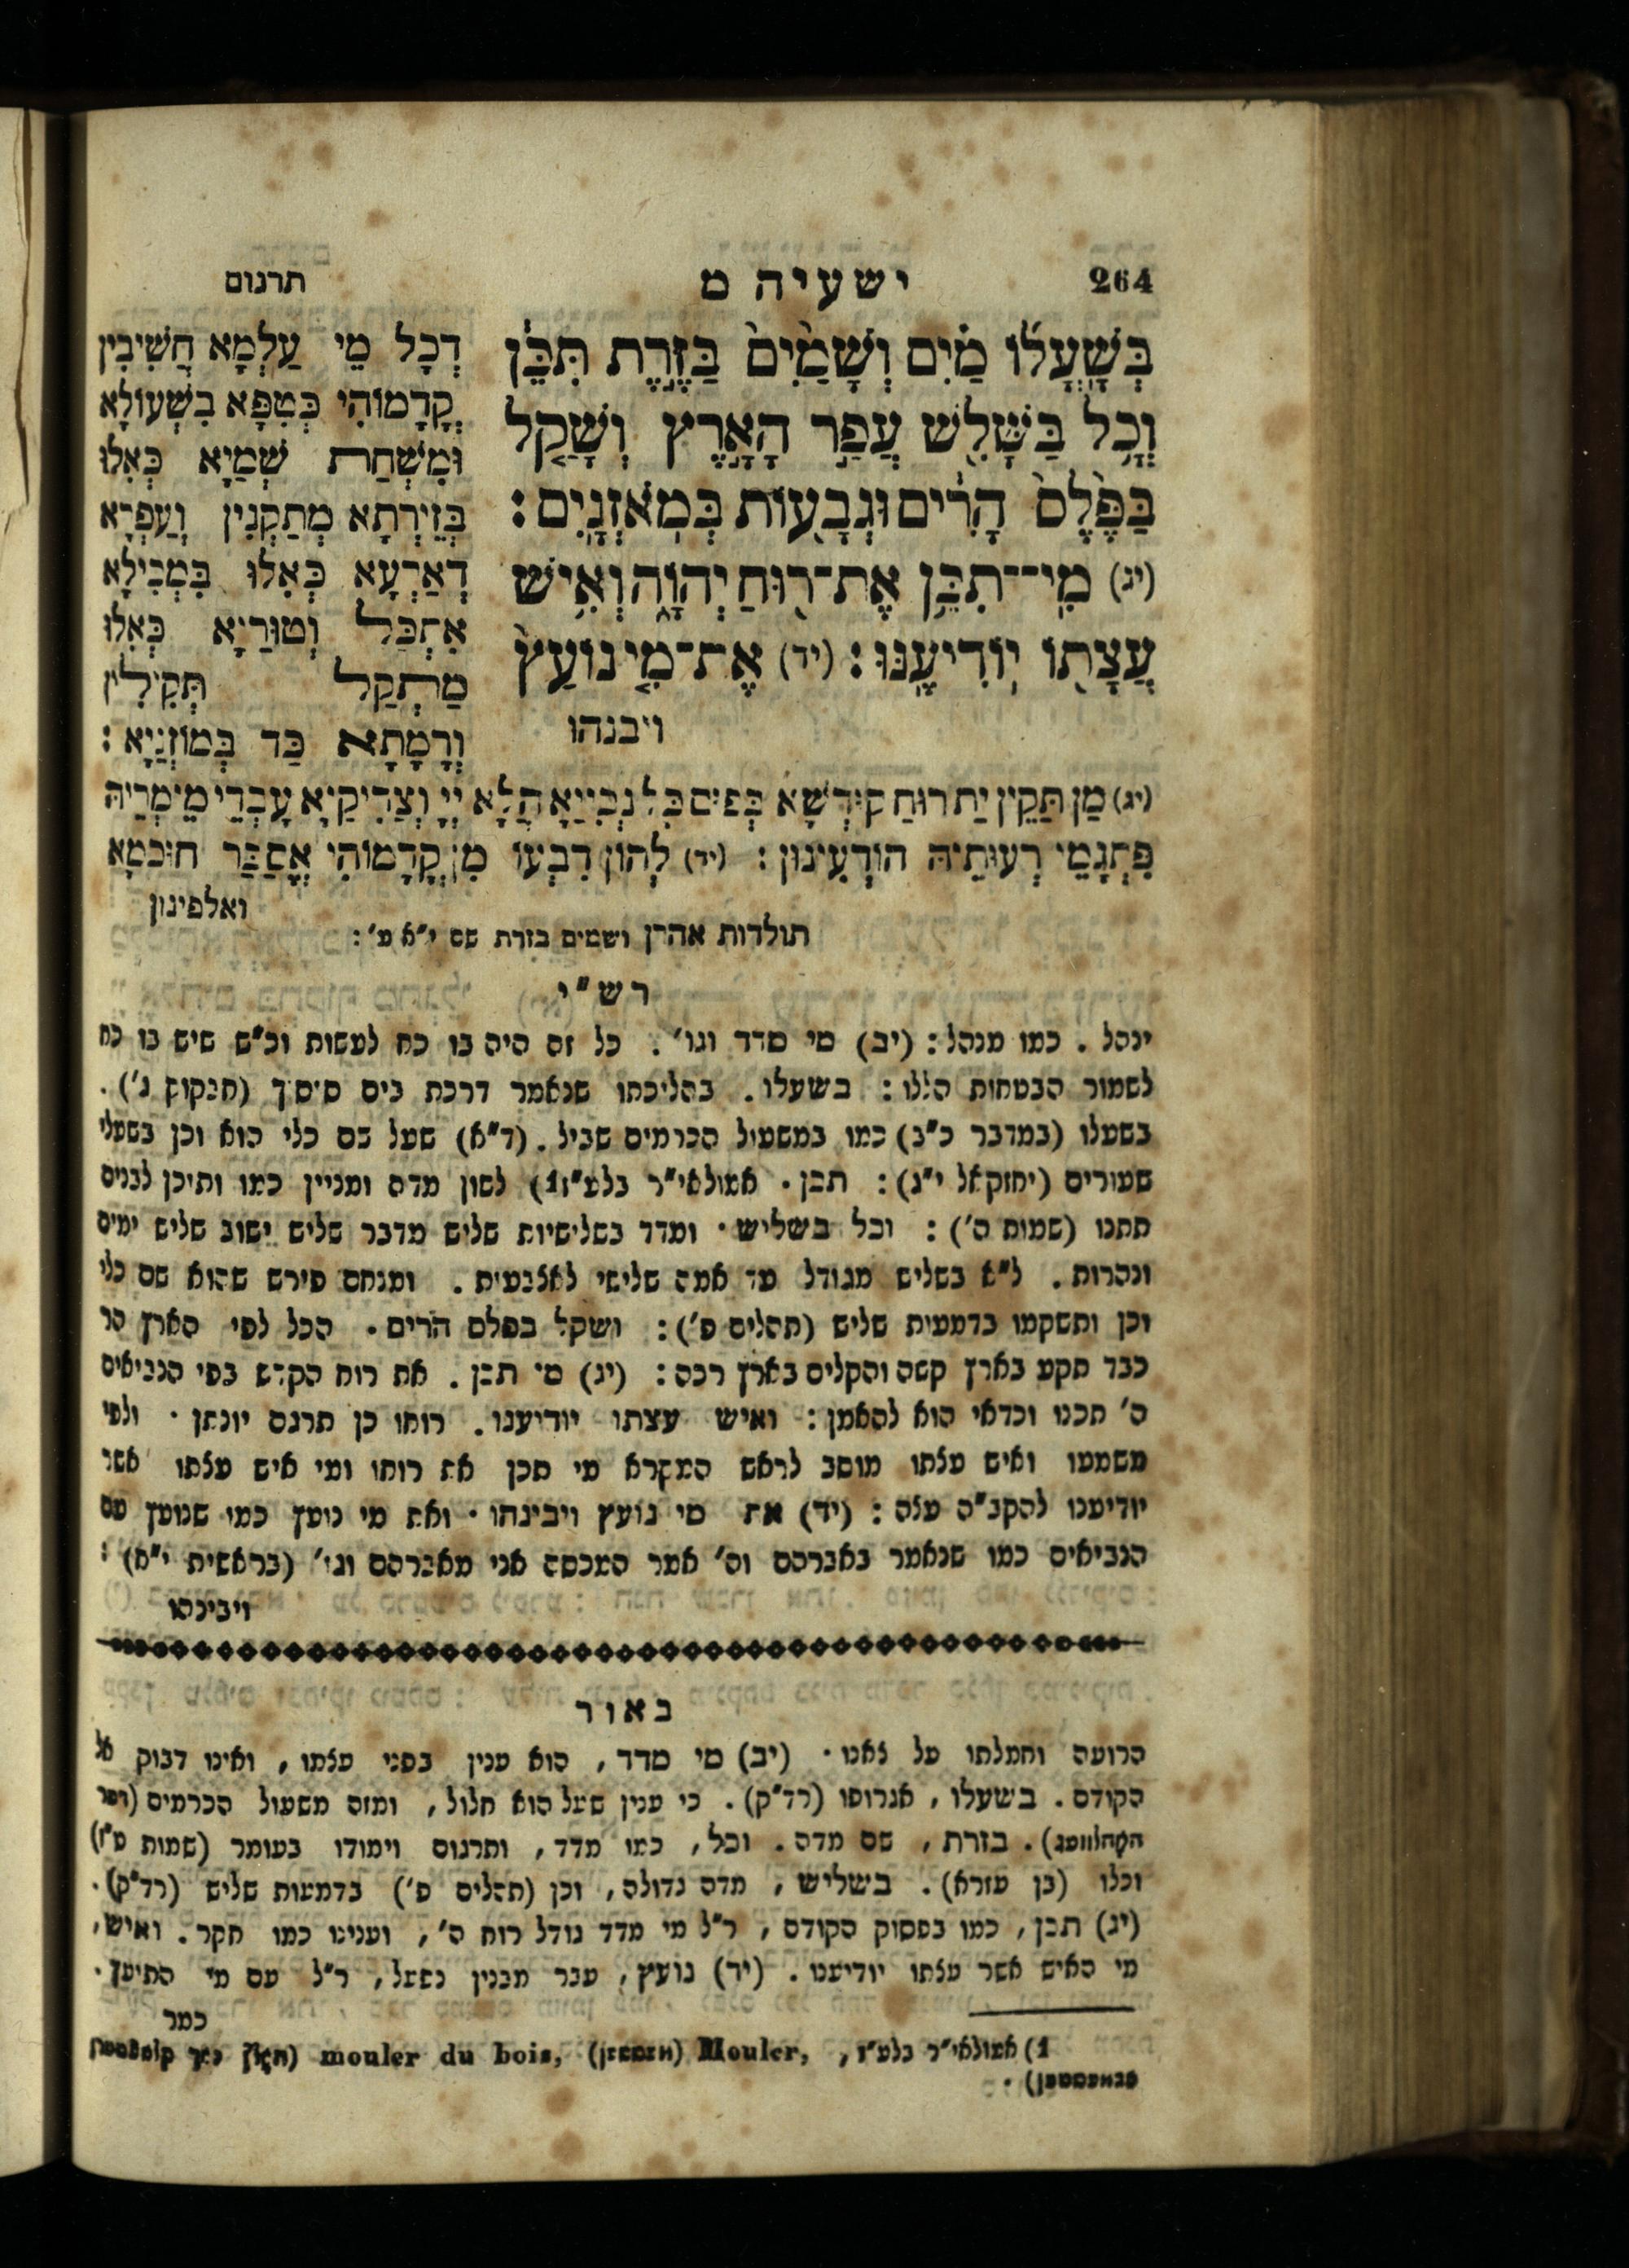 264
ישעיה מ
תרגום
בְּשָׁעֳל֜וֹ מַ֗יִם וְשָׁמַ֙יִם֙ בַּזֶּ֣רֶת תִּכֵּ֔ן
וְכָ֥ל בַּשָּׁלִ֖שׁ עֲפַ֣ר הָאָ֑רֶץ וְשָׁקַ֤ל
בַּפֶּ֙לֶס֙ הָרִ֔ים וּגְבָע֖וֹת בְּמֹאזְנָֽיִם׃
(יג) מִֽי־תִכֵּ֥ן אֶת־ר֖וּחַ יְהוָֹ֑ה וְאִ֥ישׁ
עֲצָת֖וֹ יֽוֹדִיעֶֽנּוּ׃ (יד) אֶת־מִ֤י נוֹעַץ֙
ויבנהו
דְכָל מֵי עַלְמָא חֲשִׁיבִין
קֳדָמוֹהִי כְּטִפָּא בִשְׁעוֹלָא
וּמִשְׁחַת שְׁמַיָא כְּאִלוּ
בְּזֵירְתָא מְתַקְנִין וְעַפְרָא
דְאַרְעָא כְּאִלוּ בִּמְכִילָא
אִתְכַּל וְטוּרַיָא כְּאִלוּ
מַתְקַל תְּקִילִין
וְרָמָתָא כַּד בְּמוֹזְנַיָא׃
(יג) מַן תַּקֵין יַת רוּחַ קוּדְשָׁא בְּפוּם כָּל נְבִיַּיָא הֲלָא יְיָ וְצַדִיקַיָא עָבְדֵי מֵימְרֵיהּ
פִּתְגָמֵי רְעוּתֵיהּ הוֹדְעִינוּן׃ (יד) לְהוֹן דִבְעוֹ מִן קֳדָמוֹהִי אֲסַבַּר חוּכמָא
ואלפינון
תולדות אהרן ושמים בזרת שם י"א ע':
רש"י
ינהל . כמו מנהל: (יב) מי מדד וגו' . כל זה היה בו כח לעשות וכ"ש שיש בו כח
לשמור הבטחות הללו: בשעלו . בהליכתו שנאמר דרכת בים סוסיך (חבקוק ג') .
בשעלו (במדבר כ"ב) כמו במשעול הכרמים שביל . (ד"א) שעל שם כלי הוא וכן בשעלי
שעורים (יחזקאל י"ג): תכן . אמולאי"ר בלע"ז1) לשון מדה ומניין כמו ותוכן לבנים
תתנו (שמות ה'): וכל בשליש . ומדד בשלישיות שליש מדבר שליש ישוב שליש ימים
ונהרות . ל"א בשליש מגודל עד אמה שלישי לאצבעות . ומנחם פירש שהוא שם כלי
וכן ותשקמו בדמעות שליש (תהלים פ'): ושקל בפלס הרים . הכל לפי הארץ הר
כבד תקע בארץ קשה והקלים בארץ רכה: (יג) מי תכן . את רוח הקדש בפי הנביאים
ה' תכנו וכדאי הוא להאמן: ואיש עצתו יודיענו . רוחו כן תרגם יונתן . ולפי
משמעו ואיש עצתו מוסב לראש המקרא מי תכן את רוחו ומי איש עצתו אשר
יודיענו להקב"ה עצה: (יד) את מי נועץ ויבינהו . ואת מי נועץ כמי שנועץ עם
הנביאים כמו שנאמר באברהם וה' אמר המכסה אני מאברהם וגו' (בראשית י"א):
ויבינהו
באור
הרועה וחמלתו על צאנו . (יב) מי מדד, הוא ענין בפני עצמו, ואינו דבוק אל
הקודם . בשעלו, אגרופו (רד"ק) . כי ענין שעל הוא חלול, ומזה משעול הכרמים
בזרת, שם מדה . וכל, כמו מדד, ותרגום וימודו בעומר (שמות ט"ז)
וכלו (בן עזרא) . בשליש, מדה גדולה, וכן (תהלים פ') בדמעות שליש (רד"ק) .
(יג) תכן, כמו בפסוק הקודם, ר"ל מי מדד גודל רוח ה', וענינו כמו חקר . ואיש,
מי האיש אשר עצתו יודיענו . (יד) נועץ, עבר מבנין נפעל, ר"ל עם מי התיעץ .
כמר
1) אמולאי"ר בלע"ז, Mouler, mouler du bois,